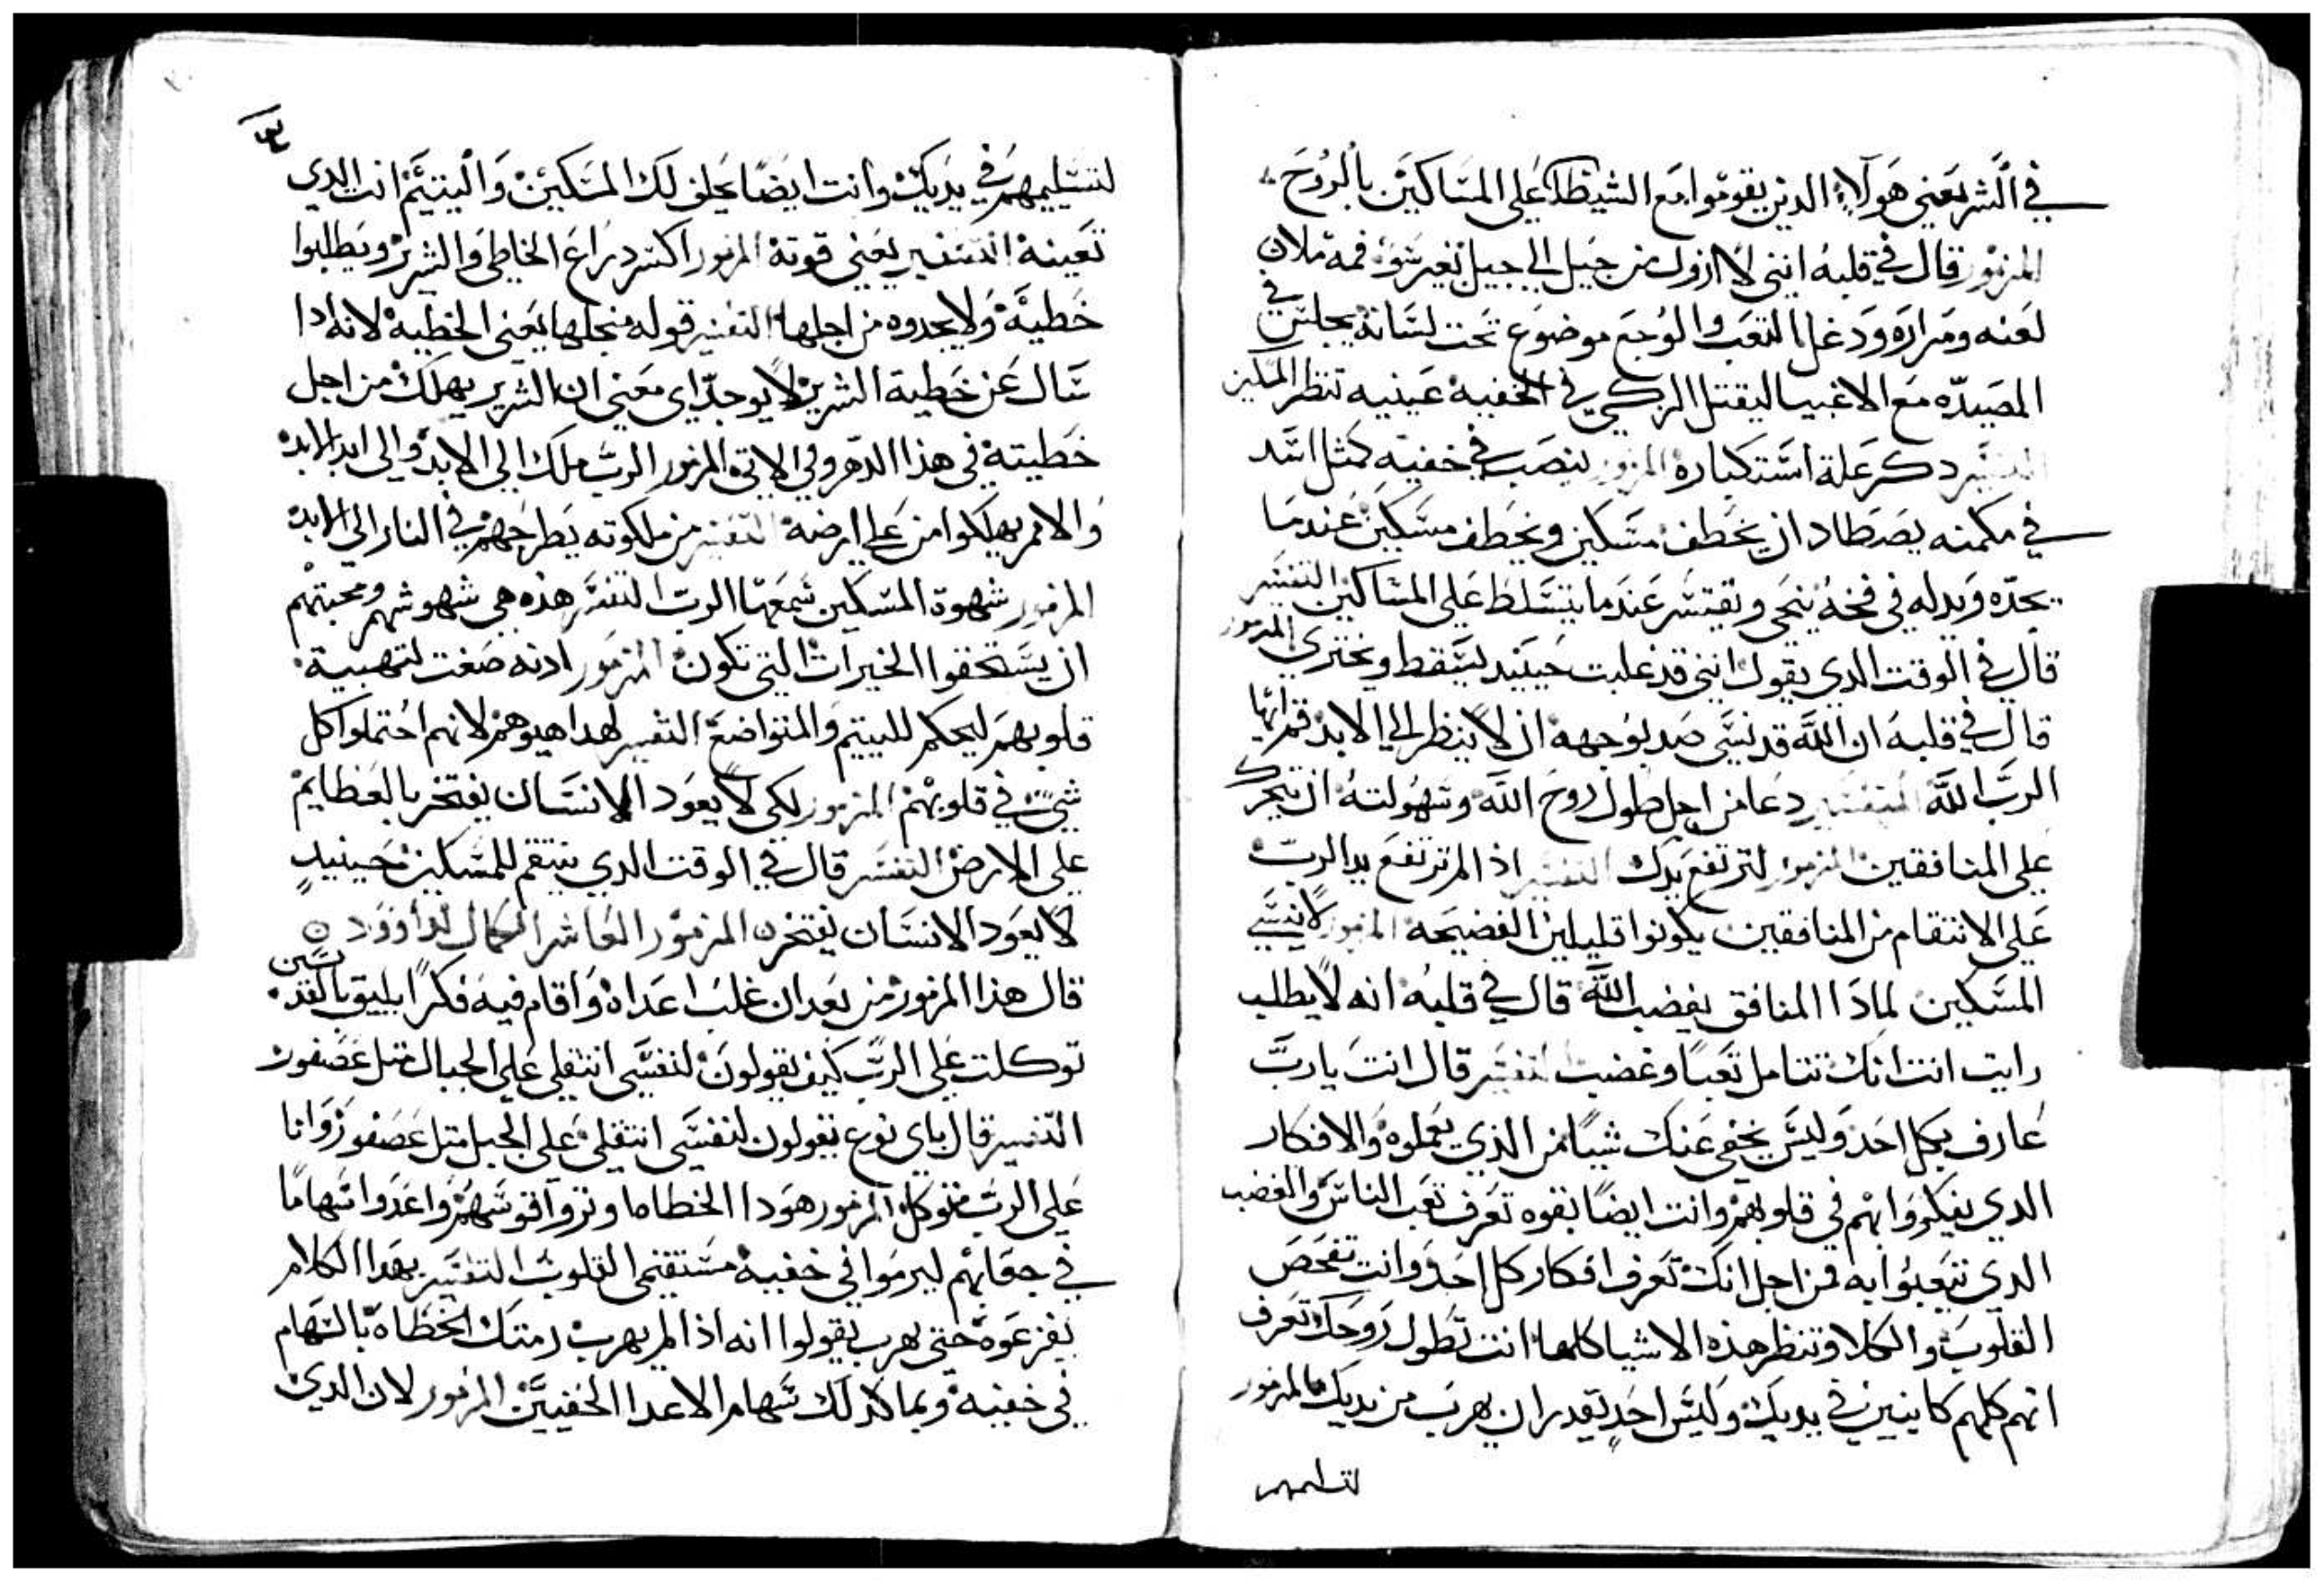 في الشر يعني هولاء الدين يقوموا مع الشيطان على المساكين بالروح
المزمور قال في قلبه انني لا ازول من جيل الى جيل بغير سو فمه ملان
لعنه ومراره ودغل التعب والوجع موضوع تحت لسانه يجلس في
المصيده مع الاغنيا ليقتل الزكي في الخفيه عينيه تنظر المسكين
التفسير دكر علة استكباره المزمور ينصب في خفيه كمثل اسد
في مكمنه يصطاد ان يخطف مسكين ويخطف مسكين عندما
يجده ويدله في فخه ينحي ويفتش عندما يتسلط على المساكين التفسير
قال في الوقت الدي يقول انني قد غلبت حينيد يسقط ويختري المزمور
قال في قلبه ان الله قد نسى صد بوجهه ان لا ينظر الي الابد قم ايها
الرب الله التفسير دعا من اجل طول روح الله وسهولته ان يتحرك
علي المنافقين المزمور لترتفع يدك التفسير اذ الم ترتفع يد الرب
على الانتقام من المنافقين يكونوا قليلين الفضيحه المزمور لا ينسي
المسكين لمادا المنافق يغضب الله قال في قلبه انه لا يطلب
رايت انت انك تتامل تعبا وغضب التفسير قال انت يا رب
عارف بكل احد وليس يخفى عنك شيا من الذي يعملوه والافكار
الدي يفكروا بهم في قلوبهم وانت ايضا بقوه تعرف تعب الناس والغضب
الدي تتعبوا به فمن اجل انك تعرف افكار كل احد وانت تفحص
القلوب والكلا وتنظر هذه الاشيا كلها انت تطول روحك تعرف
انهم كلهم كاينين في يديك وليس احد يقدر ان يهرب من يديك المزمور
لتسليمهم
لتسليمهم في يديك وانت ايضا يخلف لك المسكين واليتيم انت الدي
تعينه التفسير يعني قوته المزمور اكسر دراع الخاطي والشرير ويطلبوا
خطية ولا يجدوه من اجلها التفسير قوله منجلها يعني الخطيه لانه ادا
سال عن خطية الشرير لا يوجد اي معني ان الشرير يهلك من اجل
خطيته في هذا الدهر وفي الاتي المزمور الرب ملك الي الابد والى ابد الابد
والامم يهلكوا من علي ارضه التفسير من ملكوته يطرحهم في النار الي الابد
المزمور شهوة المسكين سمعها الرب التفسير هذه هي شهوتهم ومحبتهم
ان يستحقوا الخيرات التي تكون المزمور ادنه صغت لتهيية
قلوبهم ليحكم لليتيم والمتواضع التفسير لهدا هيوهم لانهم احتملوا كل
شي في قلوبهم المزمور لكي لا يعود الانسان يفتخر بالعظايم
علي الارض التفسير قال في الوقت الدي ينتقم للمسكين حينيد
لا يعود الانسان يفتخر المزمور العاشر الكمال لداوود
قال هذا المزمور من بعد ان غلب اعداه واقام فيه فكرا يليق بالقديسين
توكلت علي الرب كيف يقولون لنفسي انتقلي علي الجبال متل عصفور
التفسير قال باي نوع تقولون لنفسي انتقلي علي الجبل متل عصفور وانا
علي الرب متوكل المزمور هودا الخطاه اوتروا قوسهم واعدوا سهاما
في جعابهم ليرموا في خفية مستقيمي القلوب التفسير بهدا الكلام
يفزعوه حتى يهرب يقولوا انه اذ الم يهرب رمتك الخطاه بالسهام
في خفيه وبما كدلك سهام الاعدا الخفيين المزمور لان الدي